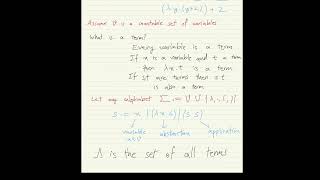 (λy.(y+2))+2
Assume V is a countable set of variables
What is a term?
Every variable is a term
If x is a variable and t a term
then λx.t is a term
If s,t are terms then s t
is also a term
Let our alphabet Σ := V ∪ {λ, ., (, )}
s := x | (λx.s) | (s s)
variable abstraction application
x ∈ V
Λ is the set of all terms